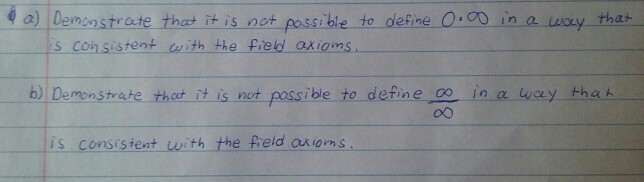 a) Demonstrate that it is not possible to define 0·∞ in a way that
is consistent with the field axioms.
b) Demonstrate that it is not possible to define ∞/∞ in a way that
is consistent with the field axioms.